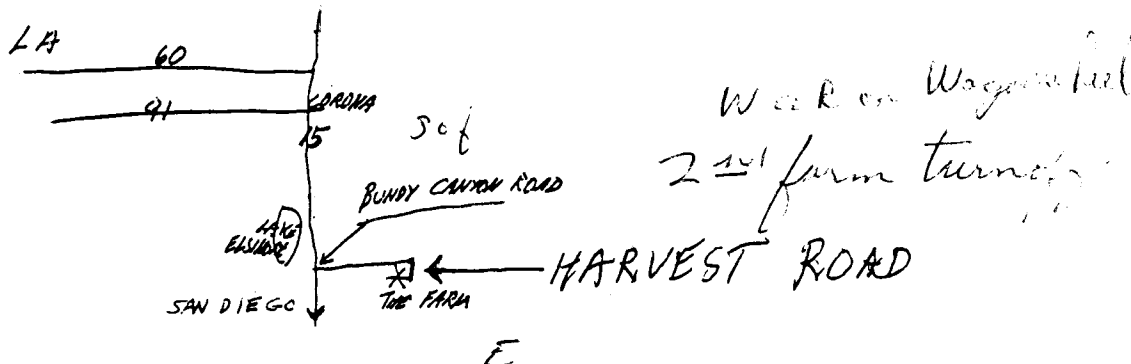 LA
60
91
CORONA
15
S of
W on Wagonwheel
2nd farm turnoff
BUNDY CANYON ROAD
LAKE
ELSINORE
HARVEST ROAD
THE FARM
SAN DIEGO
E